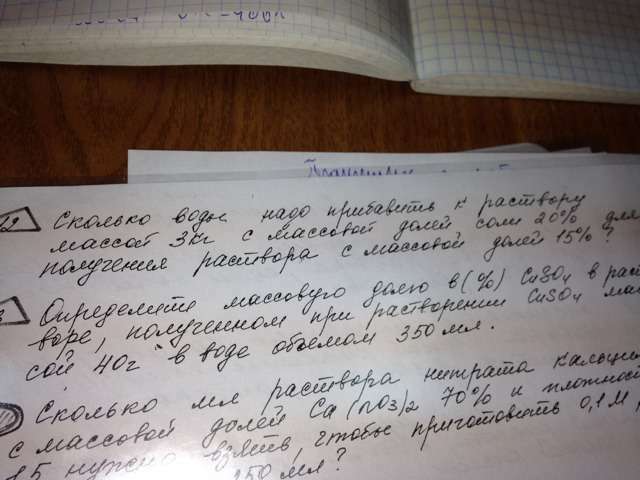 Сколько воды надо прибавить к раствору
массой 3кг с массовой долей соли 20% для
получения раствора с массовой долей 15%?
Определите массовую долю в (%) CuSO4 в раст
воре, полученном при растворении CuSO4 мас
сой 40г в воде объемом 350 мл.
Сколько мл раствора нитрата кальция
с массовой долей Ca(NO3)2 70% и плотност
1.5 нужно взять, чтобы приготовить 0,1М
мл?